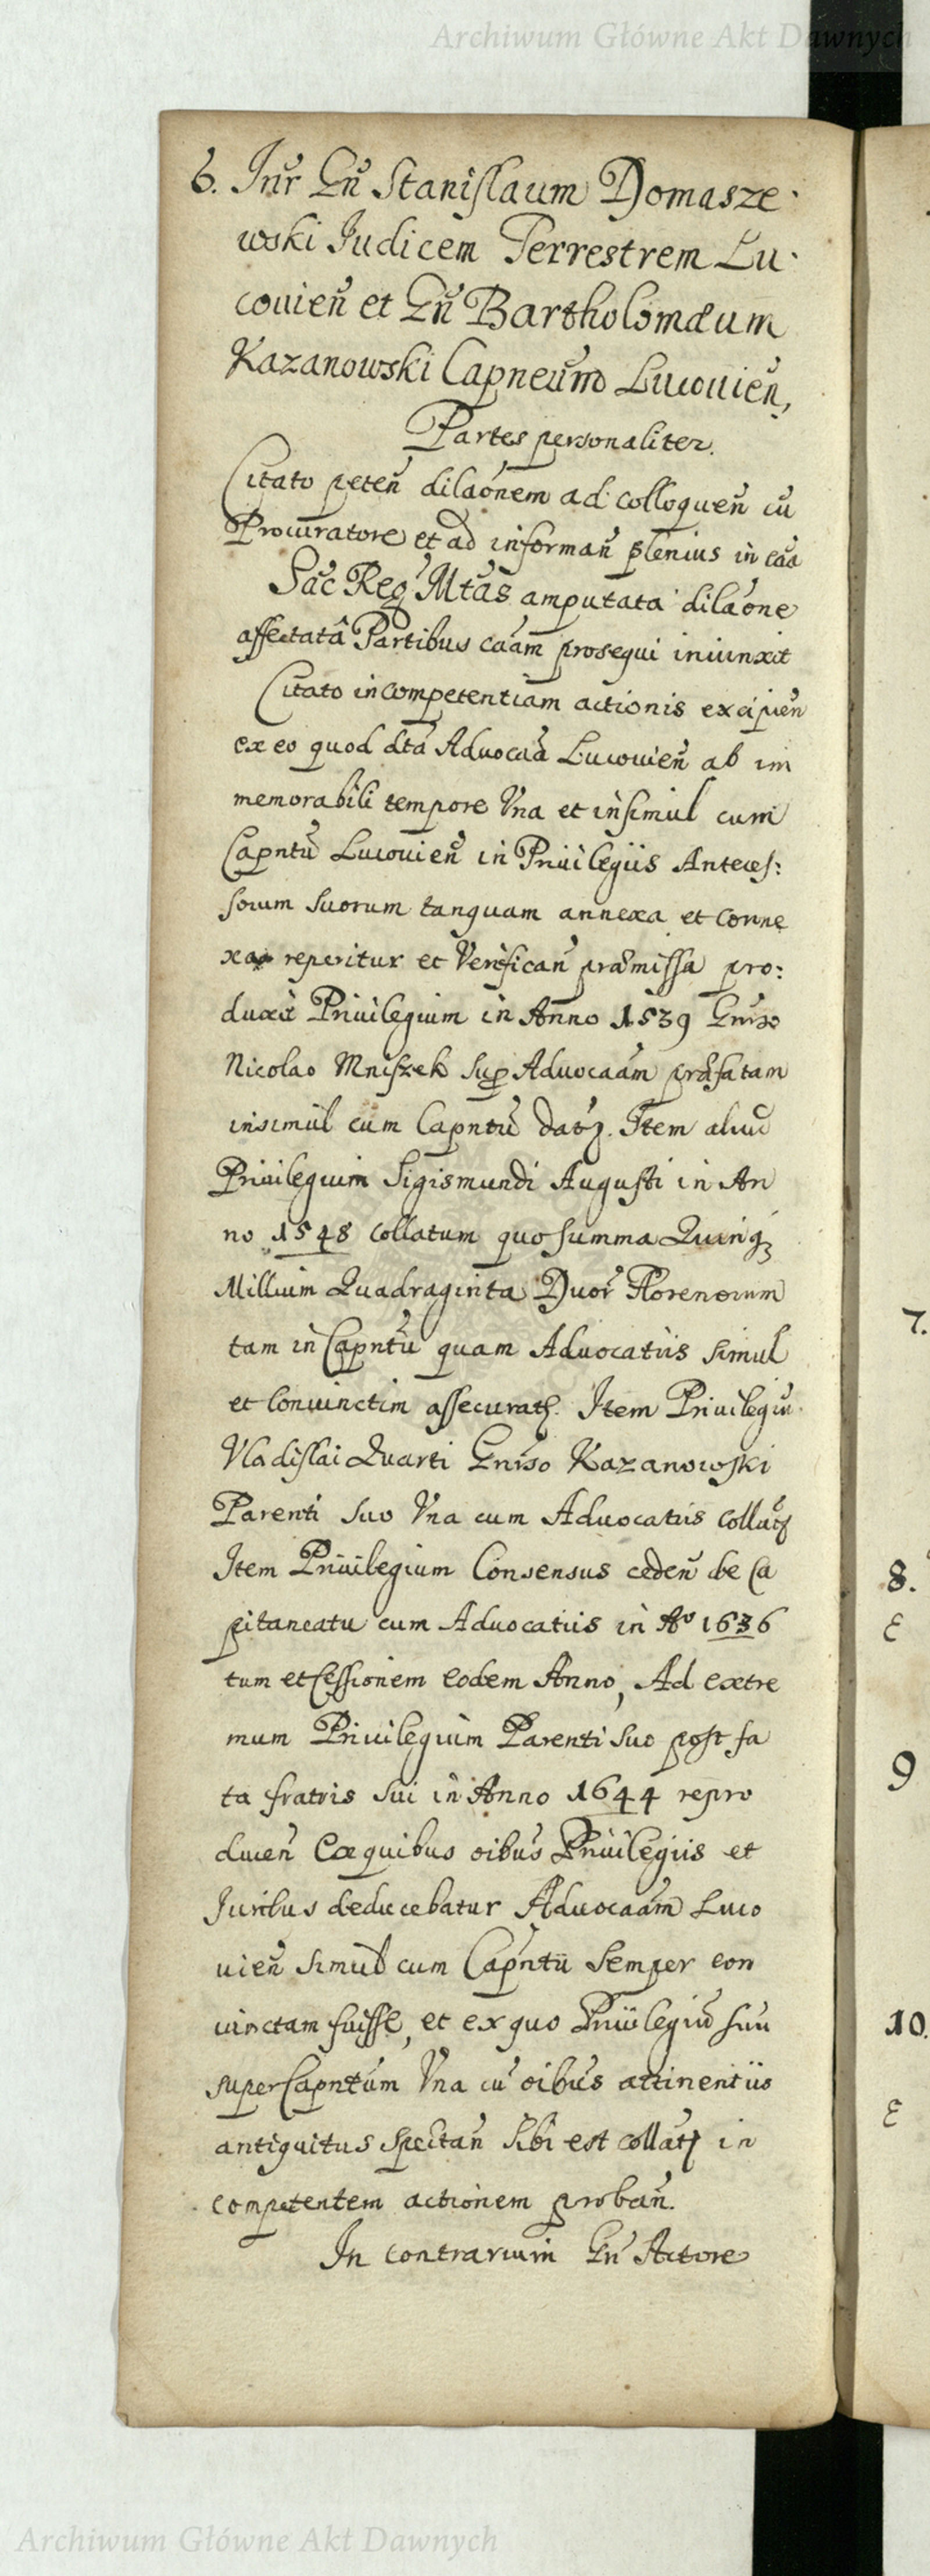 Archiwum Główne Akt Dawnych
6. Inr Gn̄ Stanislaum Domasze-
wski Iudicem Terrestrem Lu-
couien̄ et Gn̄ Bartholomæum
Kazanowski Capneum Lucouien̄,
Partes personaliter.
Citato peten̄ dilaōnem ad colloquen̄ cū
Procuratore et ad informan̄ plenius in caā
Sac̄ Reg Mtas̄ amputata dilaōne
affectatâ Partibus caām prosequi iniunxit
Citato incompetentiam actionis excipien̄
ex eo quod dta Aduocaā Lucouien̄ ab im
memorabili tempore Vna et insimul cum
Capntū Lucouien̄ in Priuilegiis Anteces:
sorum suorum tanquam annexa et conne
xa reperitur et Verifican̄ præmissa pro:
duxit Priuilegium in Anno 1539 Gnrso
Nicolao Mniszek sup Aduocaām præfatam
insimul cum Capntū datz. Item aliud
Priuilegium Sigismundi Augusti in An
no 1548 collatum quo summa Quinqz
Millium Quadraginta Duor̄ Florenorum
tam in Capntū quam Aduocatiis simul
et Conuinctim assecuratz. Item Priuilegiū
Vladislai Quarti Gnrso Kazanowski
Parenti suo Vna cum Aduocatiis collatz
Item Priuilegium Consensus ceden̄ de Ca
pitaneatu cum Aduocatiis in Ao 1636
tum et Cessionem eodem Anno, Ad extre
mum Priuilegium Parenti suo post fa
ta fratris sui in Anno 1644 repro
ducen̄ Ex quibus oibus Priuilegiis et
Iuribus deducebatur Aduocaām Luco
uien̄ simul cum Capntū semper con
uinctam fuisse, et ex quo Priuilegiū suū
super Capntum Vna cū oibus attinentiis
antiquitus spectan̄ sibi est collatz in
competentem actionem proban̄.
In contrarium Gn̄ Actore
7.
8.
9
10.
Archiwum Główne Akt Dawnych